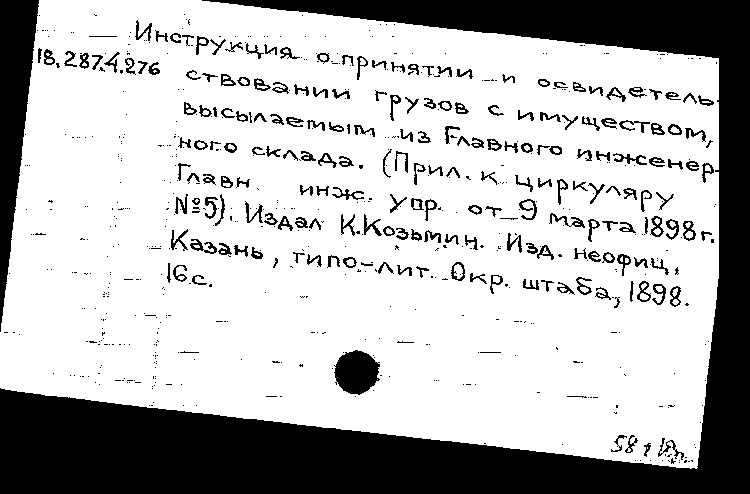 Инструкция о принятии и освидетель-
18.287.4.276 ствовании грузов с имуществом,
высылаемым из Главного инженер-
ного склада. (Прил. к циркуляру
Главн. инж. упр. от 9 марта 1898 г.
№5). Издал К.Козьмин. Изд. неофиц.
Казань, типо-лит. Окр. штаба, 1898.
16 с.
58